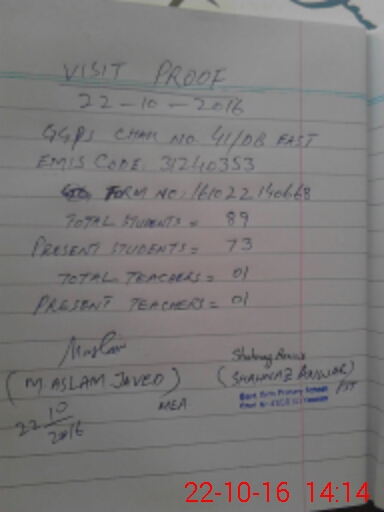 VISIT PROOF
22-10-2016
GGPS CHAK NO. 41/DB EAST
EMIS CODE: 31240353
FORM NO: 161022140668
TOTAL STUDENTS = 89
PRESENT STUDENTS = 73
TOTAL TEACHERS = 01
PRESENT TEACHERS = 01
(M. ASLAM JAVED)
MEA
22 10/2016
Shahnaz Anwar
(SHAHNAZ ANWAR)
PST
22-10-16 14:14